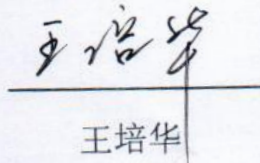 王培华
王培华